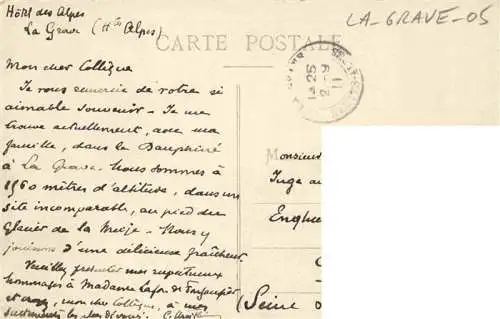 Hôtel des Alpes
La Grave (Htes Alpes)
LA-GRAVE-05
CARTE POSTALE
Mon cher Collègue
Je vous remercie de votre si
aimable souvenir - Je me
trouve actuellement, avec ma
famille, dans le Dauphiné
à La Grave. Nous sommes à
1560 mètres d'altitude, dans un
site incomparable, au pied du
Glacier de la Meije - Nous y
jouissons d'une délicieuse fraîcheur.
Veuillez présenter mes respectueux
hommages à Madame
et croyez, mon cher Collègue, à mes
sentiments les
14 25
2-9
11
Monsieur
Juge au
Enghi
(Seine